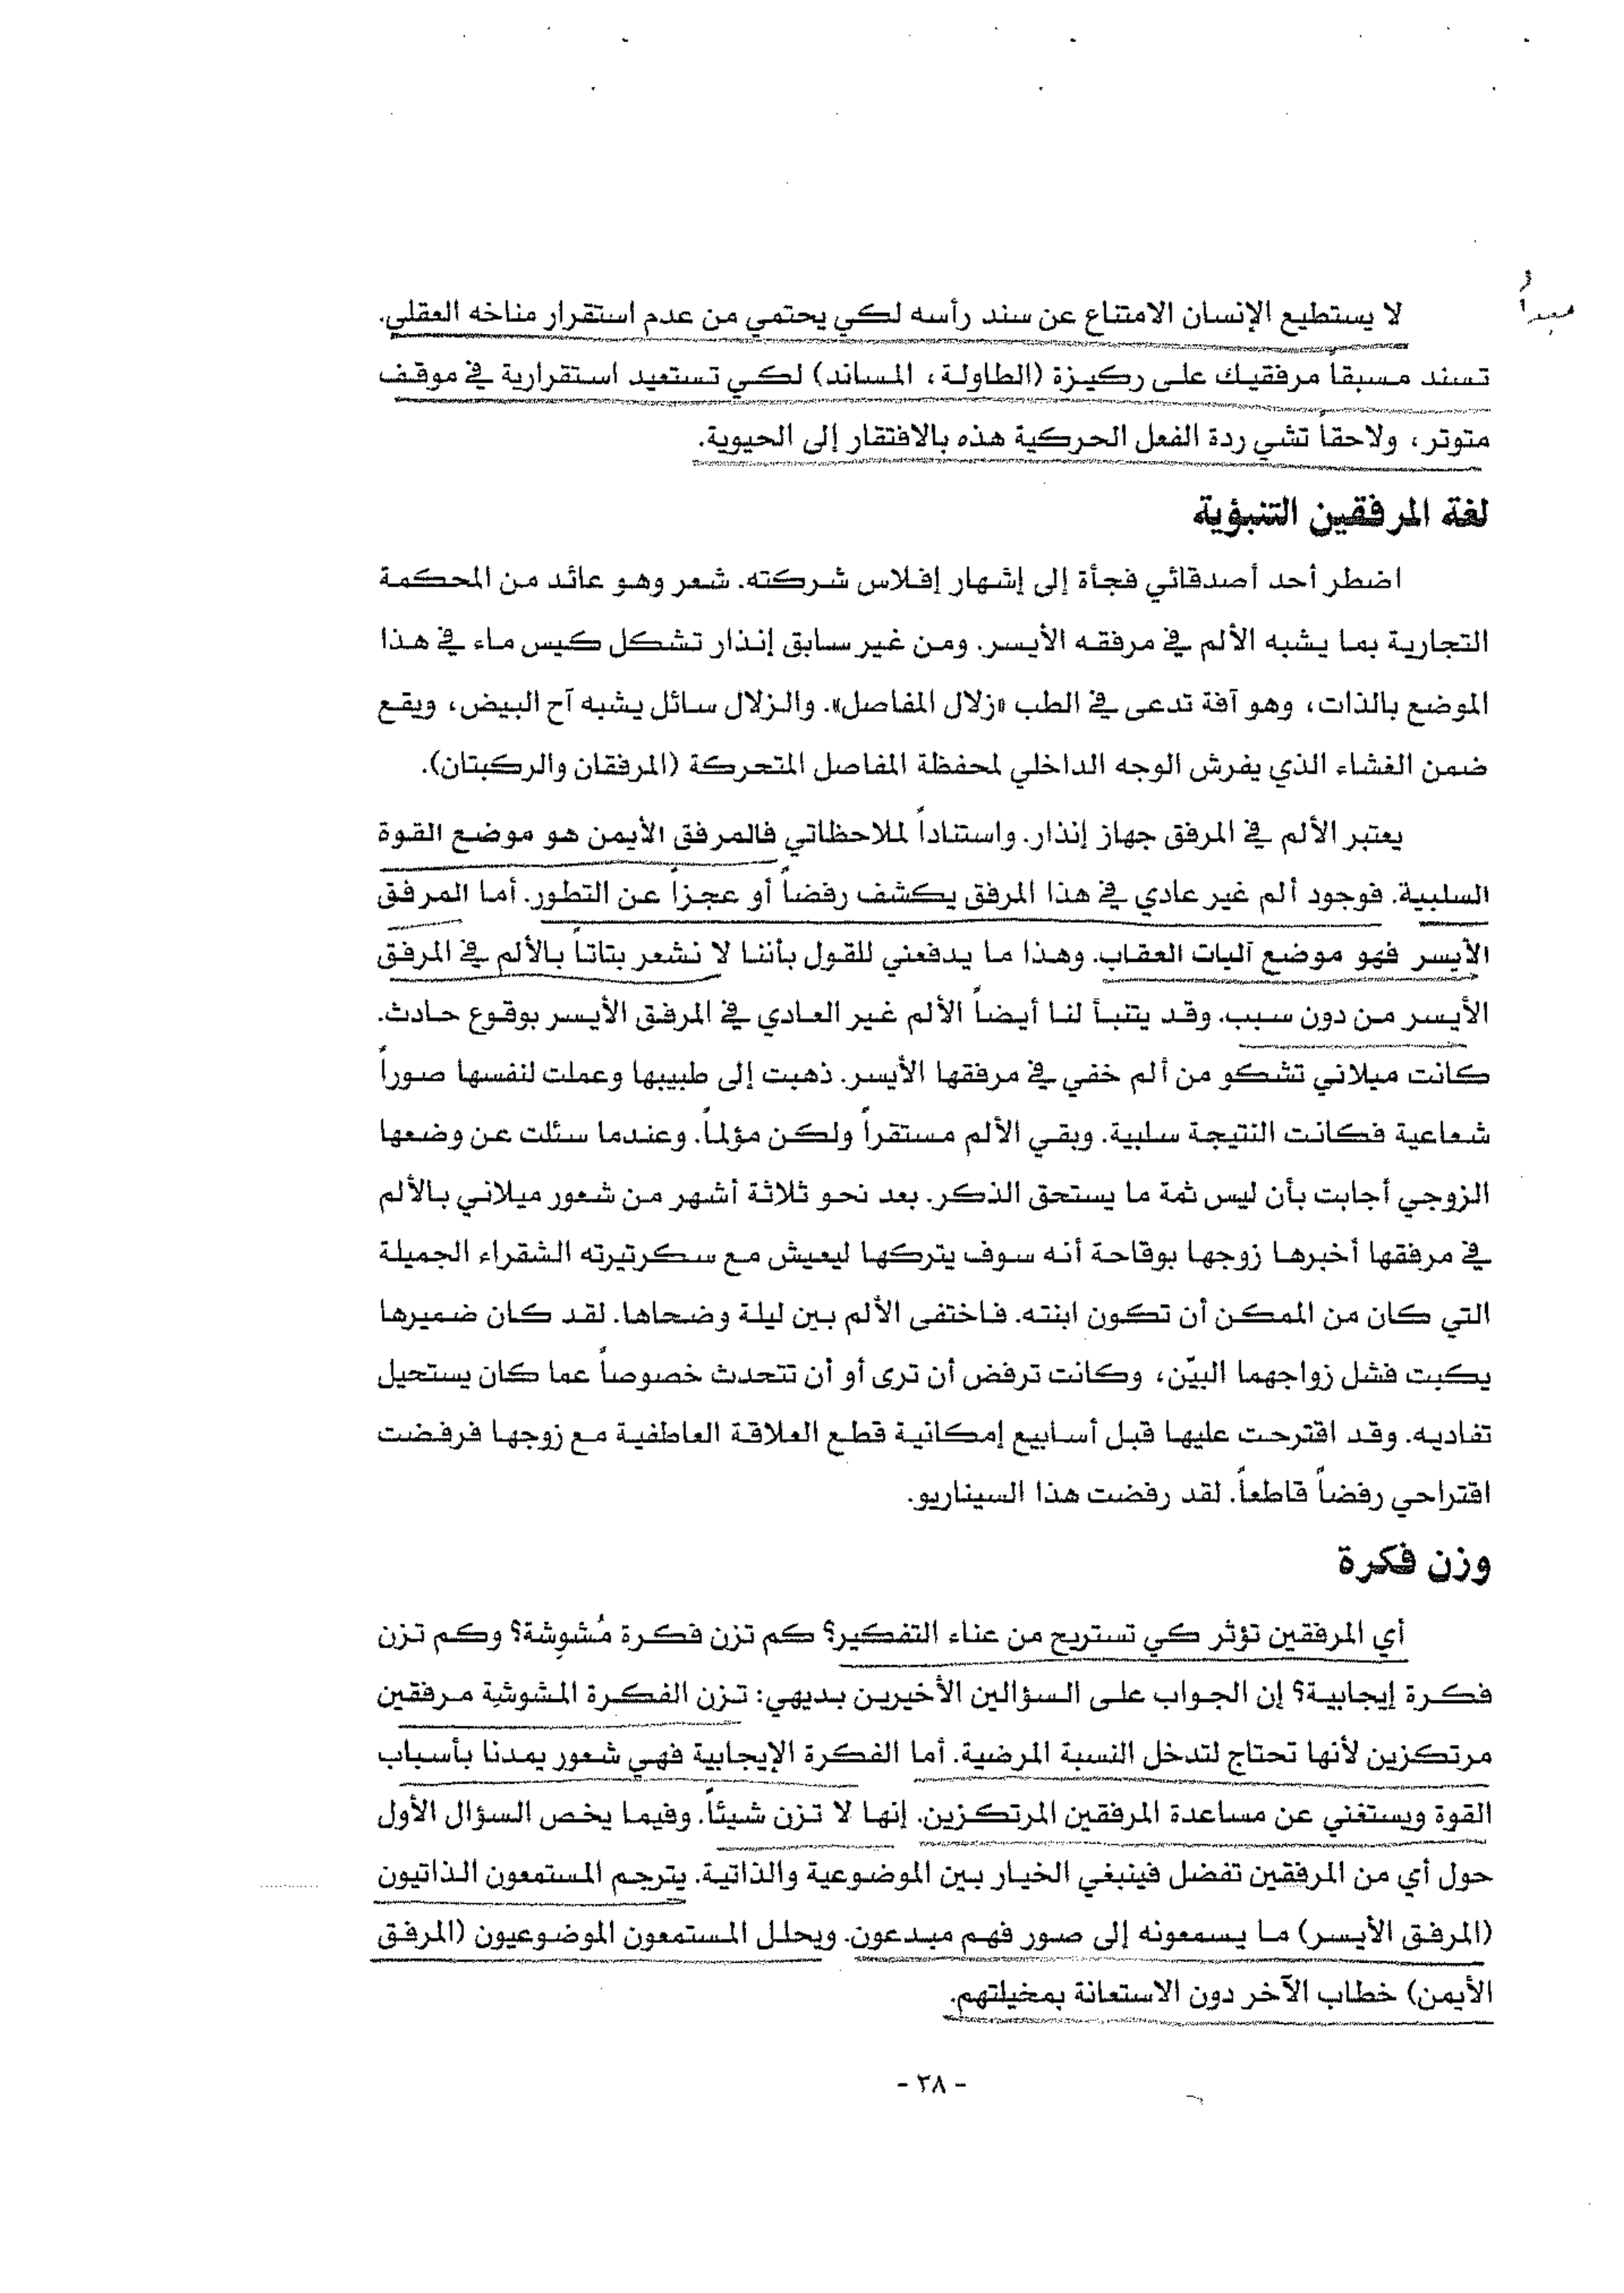 لا يستطيع الإنسان الامتناع عن سند رأسه لكي يحتمي من عدم استقرار مناخه العقلي.
تسند مسبقاً مرفقيك على ركيزة (الطاولة، المساند) لكي تستعيد استقرارية في موقف
متوتر، ولاحقاً تشي ردة الفعل الحركية هذه بالافتقار إلى الحيوية.
لغة المرفقين التنبؤية
اضطر أحد أصدقائي فجأة إلى إشهار إفلاس شركته. شعر وهو عائد من المحكمة
التجارية بما يشبه الألم في مرفقه الأيسر. ومن غير سابق إنذار تشكل كيس ماء في هذا
الموضع بالذات، وهو آفة تدعى في الطب «زلال المفاصل». والزلال سائل يشبه آح البيض، ويقع
ضمن الغشاء الذي يفرش الوجه الداخلي لمحفظة المفاصل المتحركة (المرفقان والركبتان).
يعتبر الألم في المرفق جهاز إنذار. واستناداً لملاحظاتي فالمرفق الأيمن هو موضع القوة
السلبية. فوجود ألم غير عادي في هذا المرفق يكشف رفضاً أو عجزاً عن التطور. أما المرفق
الأيسر فهو موضع آليات العقاب. وهذا ما يدفعني للقول بأننا لا نشعر بتاتاً بالألم في المرفق
الأيسر من دون سبب. وقد يتنبأ لنا أيضاً الألم غير العادي في المرفق الأيسر بوقوع حادث.
كانت ميلاني تشكو من ألم خفي في مرفقها الأيسر. ذهبت إلى طبيبها وعملت لنفسها صوراً
شعاعية فكانت النتيجة سلبية. وبقي الألم مستقراً ولكن مؤلماً. وعندما سئلت عن وضعها
الزوجي أجابت بأن ليس ثمة ما يستحق الذكر. بعد نحو ثلاثة أشهر من شعور ميلاني بالألم
في مرفقها أخبرها زوجها بوقاحة أنه سوف يتركها ليعيش مع سكرتيرته الشقراء الجميلة
التي كان من الممكن أن تكون ابنته. فاختفى الألم بين ليلة وضحاها. لقد كان ضميرها
يكبت فشل زواجهما البيّن، وكانت ترفض أن ترى أو أن تتحدث خصوصاً عما كان يستحيل
تفاديه. وقد اقترحت عليها قبل أسابيع إمكانية قطع العلاقة العاطفية مع زوجها فرفضت
اقتراحي رفضاً قاطعاً. لقد رفضت هذا السيناريو.
وزن فكرة
أي المرفقين تؤثر كي تستريح من عناء التفكير؟ كم تزن فكرة مُشوِشة؟ وكم تزن
فكرة إيجابية؟ إن الجواب على السؤالين الأخيرين بديهي: تزن الفكرة المشوشة مرفقين
مرتكزين لأنها تحتاج لتدخل النسبة المرضية. أما الفكرة الإيجابية فهي شعور يمدنا بأسباب
القوة ويستغني عن مساعدة المرفقين المرتكزين. إنها لا تزن شيئاً. وفيما يخص السؤال الأول
حول أي من المرفقين تفضل فينبغي الخيار بين الموضوعية والذاتية. يترجم المستمعون الذاتيون
(المرفق الأيسر) ما يسمعونه إلى صور فهم مبدعون. ويحلل المستمعون الموضوعيون (المرفق
الأيمن) خطاب الآخر دون الاستعانة بمخيلتهم.
- ٣٨ -